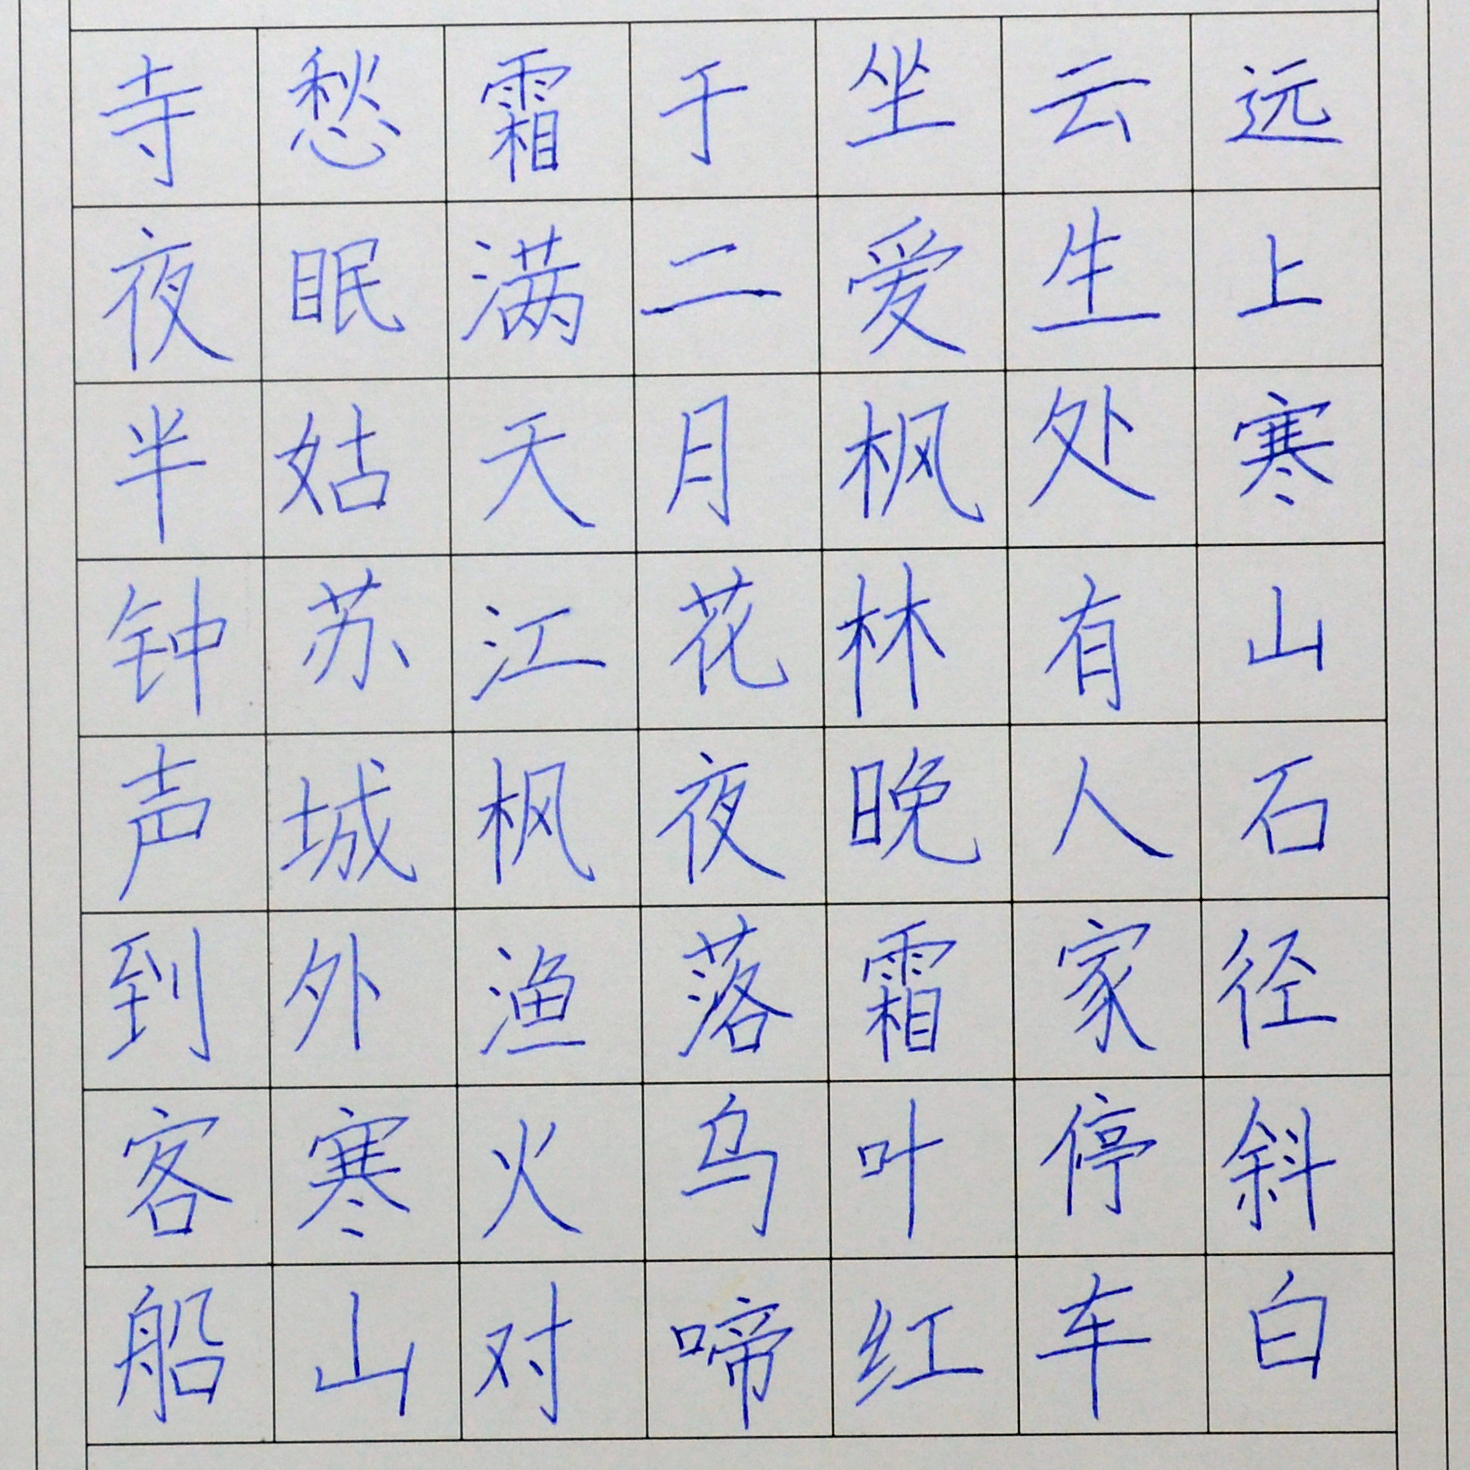 远上寒山石径斜白
云生处有人家停车
坐爱枫林晚霜叶红
于二月花夜落乌啼
霜满天江枫渔火对
愁眠姑苏城外寒山
寺夜半钟声到客船